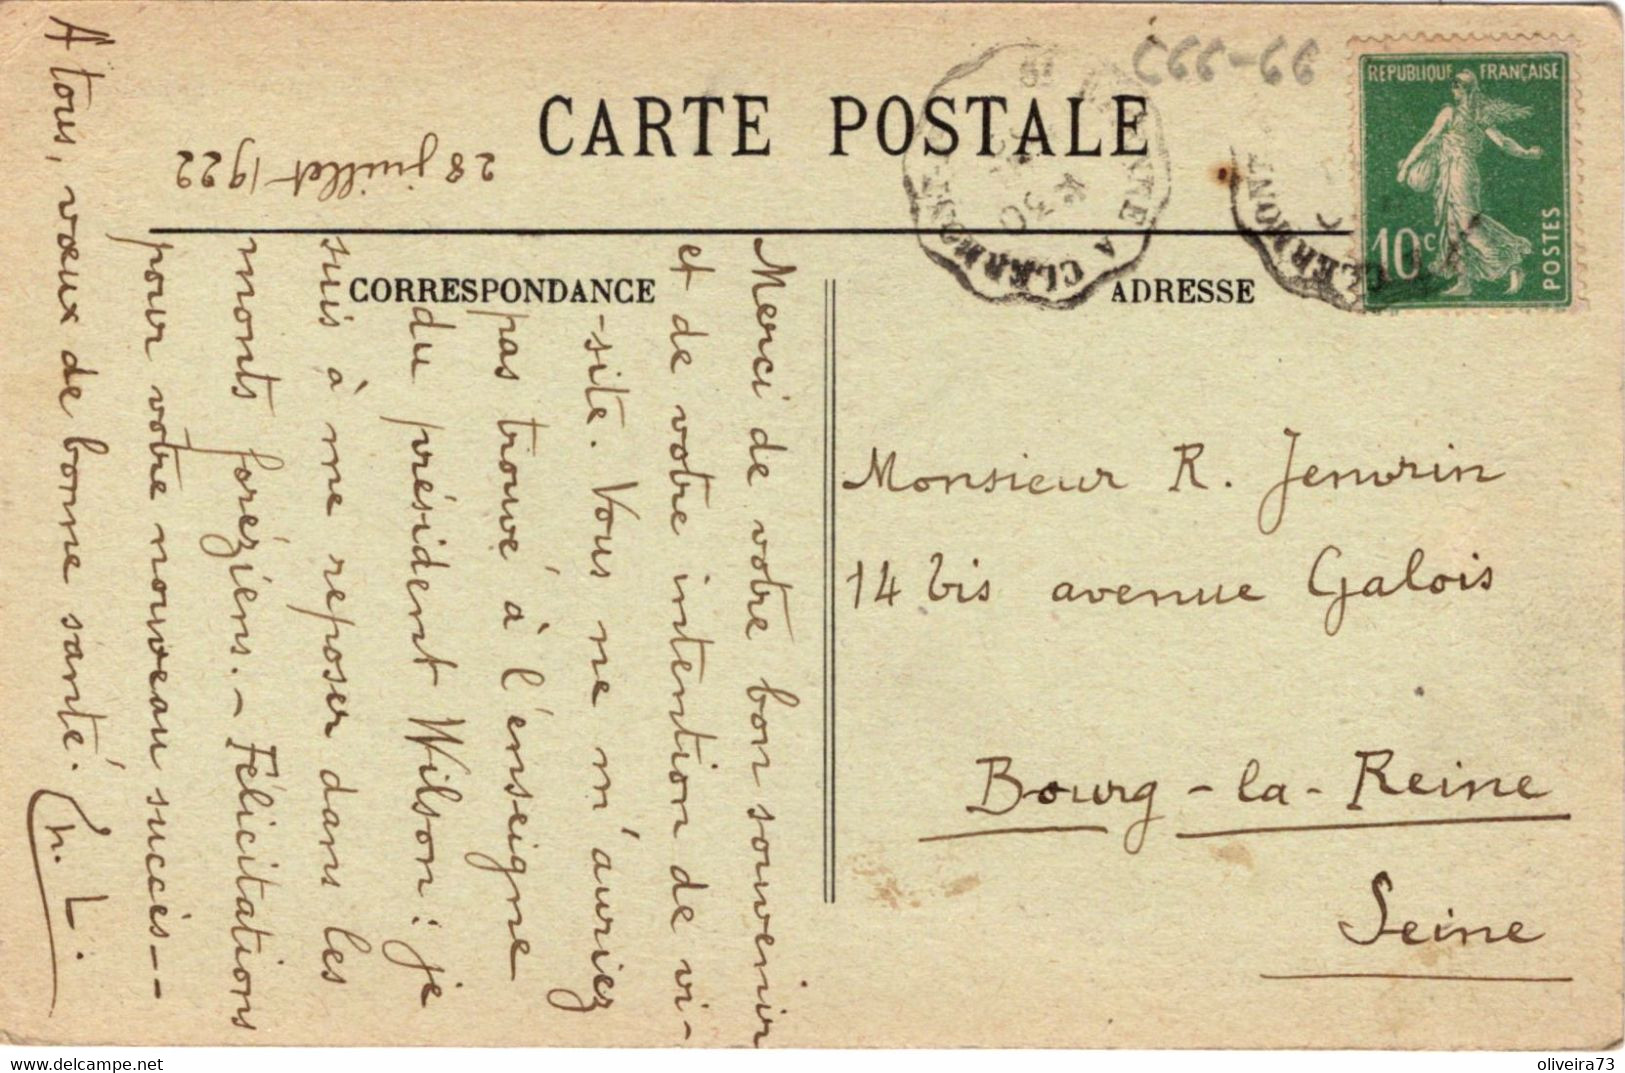 CARTE POSTALE
28 juillet 1922
CORRESPONDANCE
Merci de votre bon souvenir
et de votre intention de vi-
-site. Vous ne m'auriez
pas trouvé à l'enseigne
du président Wilson: je
suis à me reposer dans les
monts foréziens. - Félicitations
pour votre nouveau succès--
A tous, vœux de bonne santé.
h. L.
ADRESSE
Monsieur R. Jenvrin
14 bis avenue Galois
Bourg-la-Reine
Seine
REPUBLIQUE FRANÇAISE
10c
POSTES
A CLERMONT
30
CLERMONT
www.delcampe.net
oliveira73